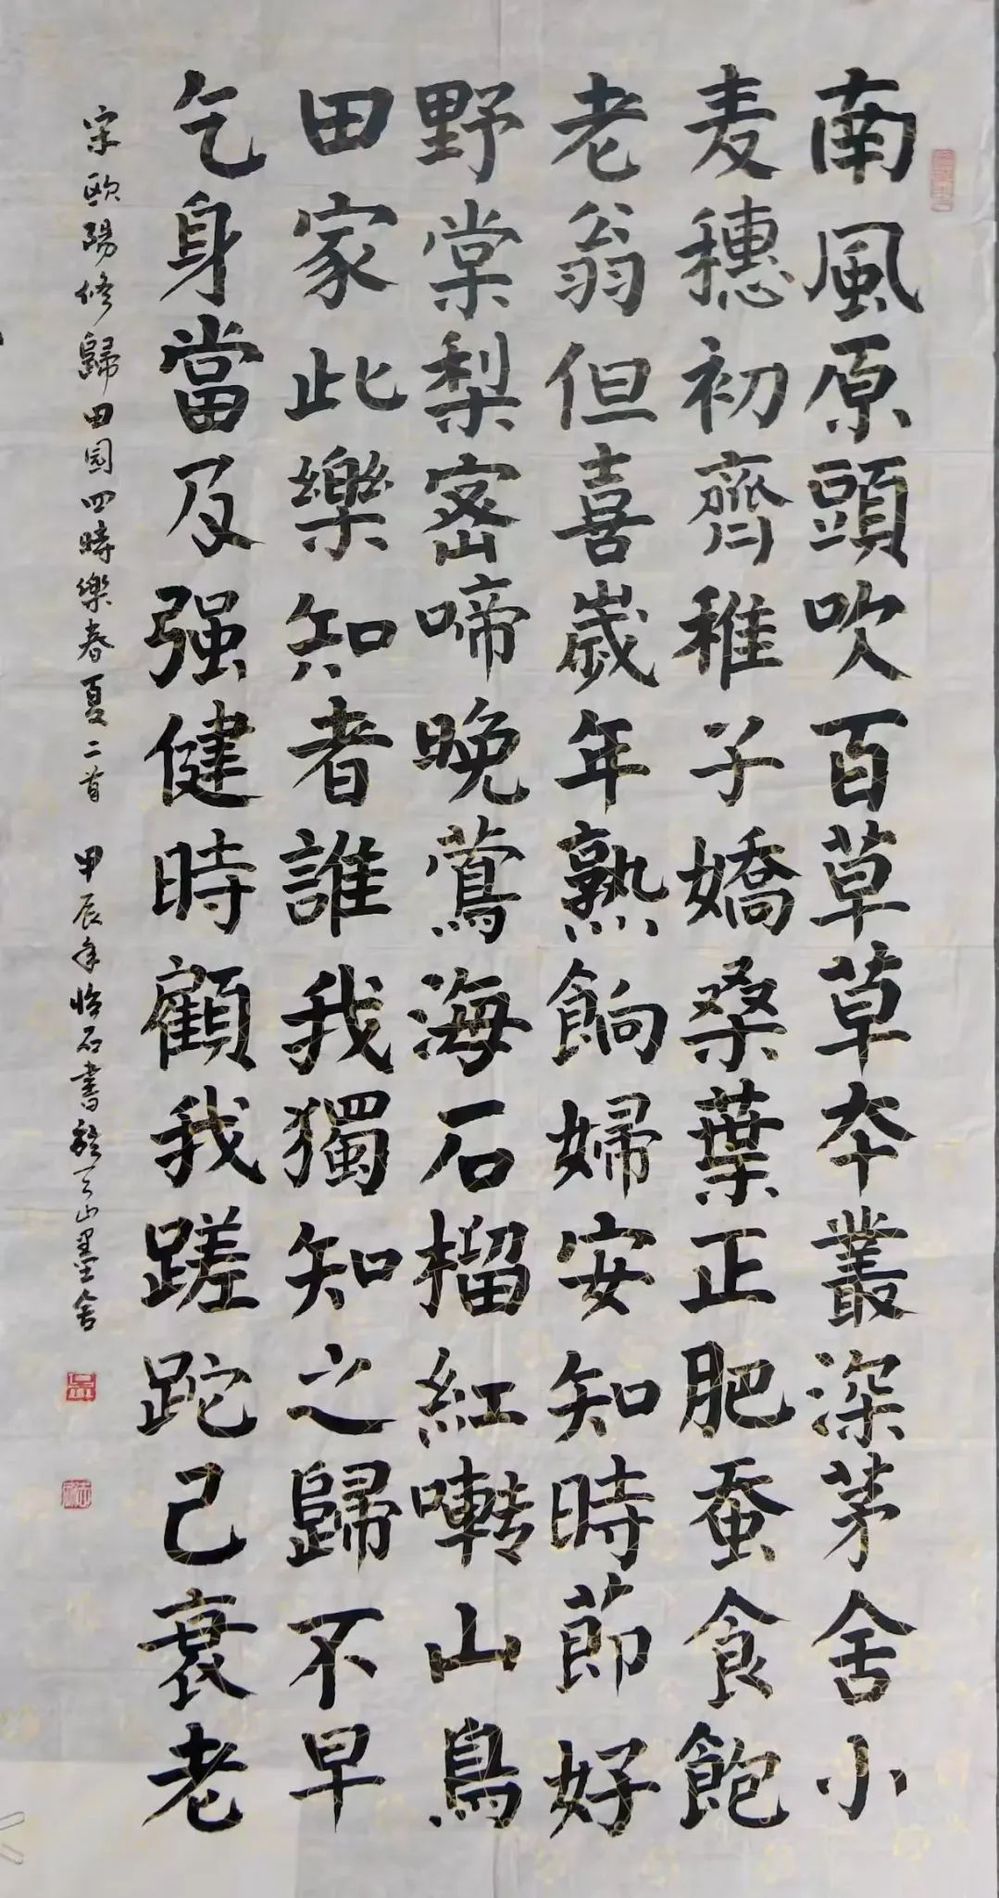 南風原頭吹百草草夲叢深茅舍小
麦穗初齊稚子嬌桑葉正肥蚕食飽
老翁但喜歲年熟餉婦安知時節好
野棠梨密啼晚鶯海石榴紅囀山鳥
田家此樂知者誰我獨知之歸不早
乞身當及强健時顧我蹉跎己衰老
宋歐陽修歸田园四時樂春夏二首 甲辰年怡石書於云山墨舍